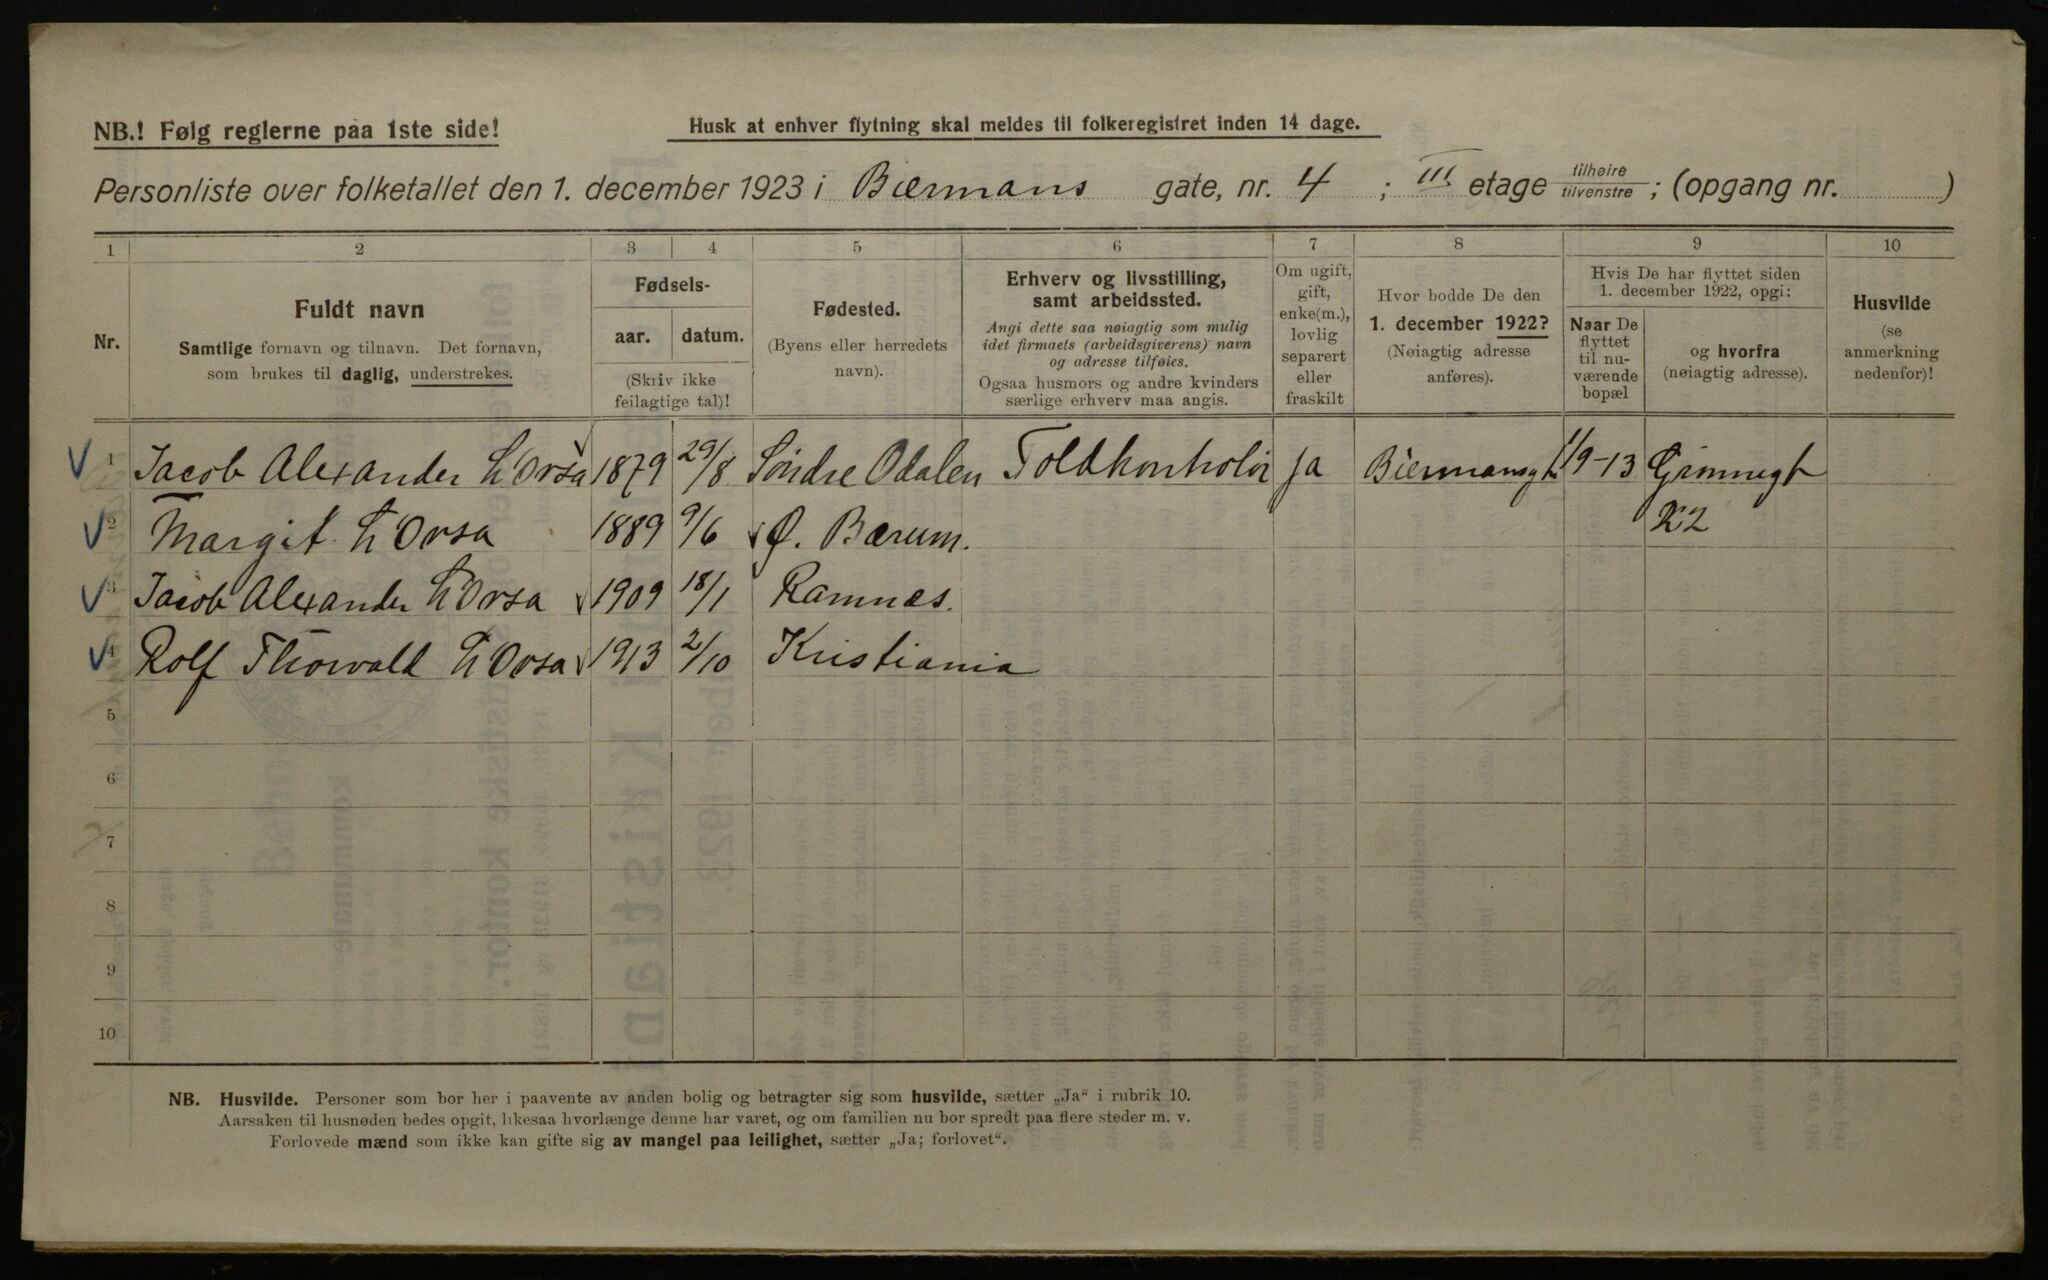 NB.! Følg reglerne paa 1ste side!
Husk at enhver flytning skal meldes til folkeregistret inden 14 dage.
Personliste over folketallet den 1. december 1923 i Biermans gate, nr. 4 ; III etage tilhøire tilvenstre ; (opgang nr. )
1 2 3 4 5 6 7 8 9 10
Nr.
Fuldt navn
Samtlige fornavn og tilnavn. Det fornavn,
som brukes til daglig, understrekes.
Fødsels-
aar. datum.
(Skriv ikke
feilagtige tal)!
Fødested.
(Byens eller herredets
navn).
Erhverv og livsstilling,
samt arbeidssted.
Angi dette saa nøiagtig som mulig
idet firmaets (arbeidsgiverens) navn
og adresse tilføies.
Ogsaa husmors og andre kvinders
særlige erhverv maa angis.
Om ugift,
gift,
enke(m.),
lovlig
separert
eller
fraskilt
Hvor bodde De den
1. december 1922?
(Nøiagtig adresse
anføres).
Hvis De har flyttet siden
1. december 1922, opgi:
Naar De
flyttet
til nu-
værende
bopæl
og hvorfra
(nøiagtig adresse).
Husvilde
(se
anmerkning
nedenfor)!
1 Jacob Alexander L'Orsa 1879 29/8 Søndre Odalen Toldkontrolør ja Biermansgt 1/9-13 Grønnegt
2 Margit L'Orsa 1889 9/6 Ø. Bærum. 22
3 Jacob Alexander L'Orsa 1909 18/1 Ramnes.
4 Rolf Thorvald L'Orsa 1913 2/10 Kristiania
5
6
7
8
9
10
NB. Husvilde. Personer som bor her i paavente av anden bolig og betragter sig som husvilde, sætter „Ja“ i rubrik 10.
Aarsaken til husnøden bedes opgit, likesaa hvorlænge denne har varet, og om familien nu bor spredt paa flere steder m. v.
Forlovede mænd som ikke kan gifte sig av mangel paa leilighet, sætter „Ja; forlovet“.